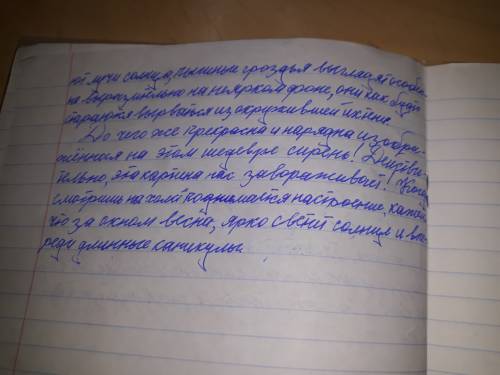 ют лучи солнца, пышные гроздья выглядят особен-
но выразительно на неярком фоне, они как будто
стараются вырваться из окружившей их тени.
До чего же прекрасна и нарядна изобра-
жённая на этом шедевре сирень! Действи-
тельно, эта картина нас завораживает! Когда
смотришь на неё поднимается настроение, кажется
что за окном весна, ярко светит солнце и впе-
реди длинные каникулы.